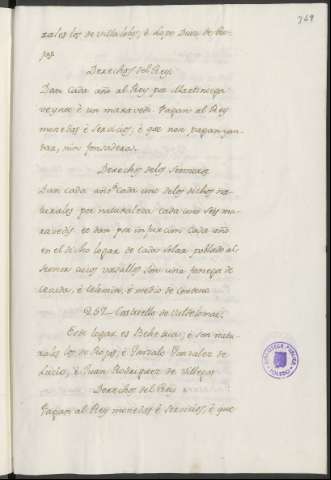 769
rales los de villalobos, é Lope Diaz de Ro-
jas
Derechos del Rey
Dan cada año al Rey por Martiniega
veynte é un maravedi. Pagan al Rey
monedas é servicios, é que non pagan yan-
tar, nin fonsadera.
Derechos delos Señores
Dan cada año á cada uno delos dichos na-
turales por naturaleza cada uno seis ma-
ravedis, é dan por infurcion cada año
en el dicho logar de cada solar poblado al
señor cuios vasallos son una fanega de
cevada, é celemin, é medio de centeno
257_ Castrillo de Valdelomar
Este logar es Behetria, é son natu-
rales los de Rojas, é Gonzalo Gonzalez de
Lucio, é Juan Rodriguez de Villegas
Derechos del Rey
Pagan al Rey monedas é servicios, é que
BIBLIOTECA PUBLICA
TOLEDO